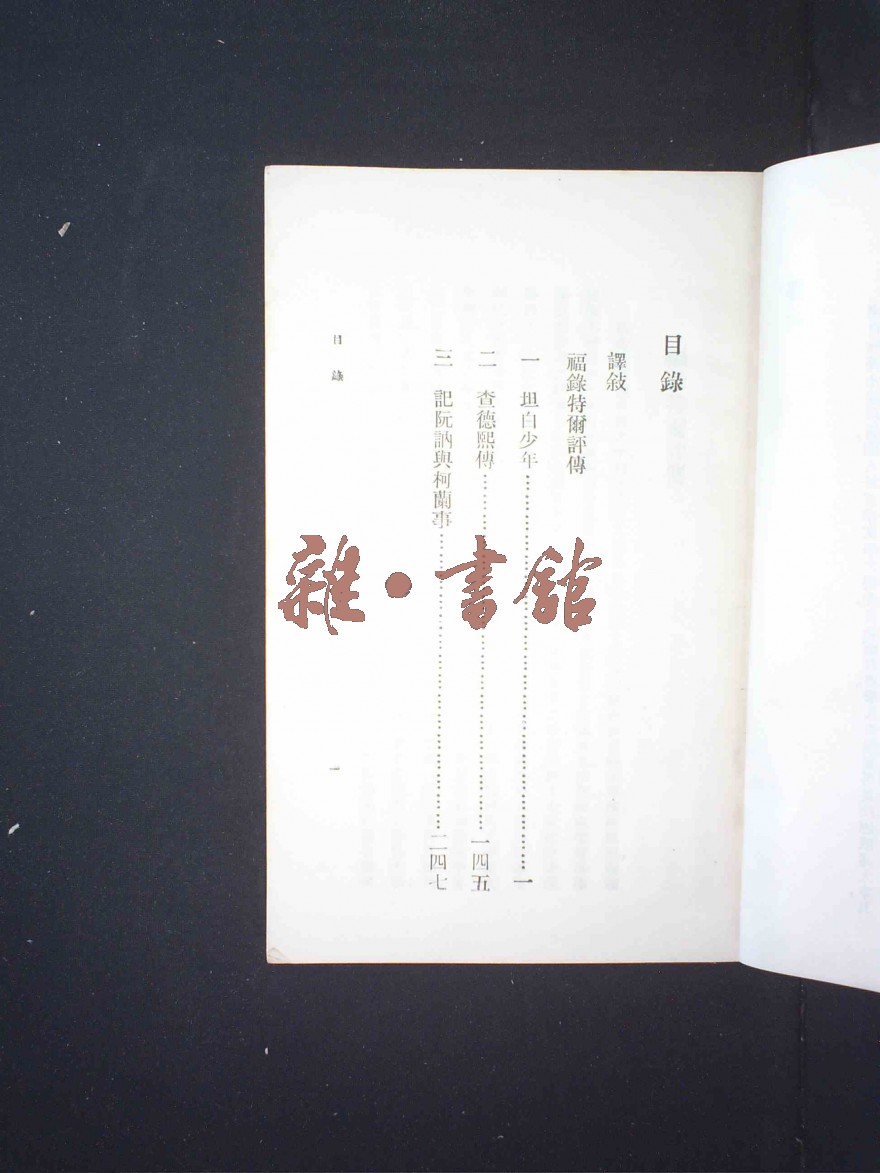 目錄
譯敍
福錄特爾評傳
一 坦白少年……一
二 查德熙傳……一四五
三 記阮訥與柯蘭事……二四七
目錄
一
雜·書館